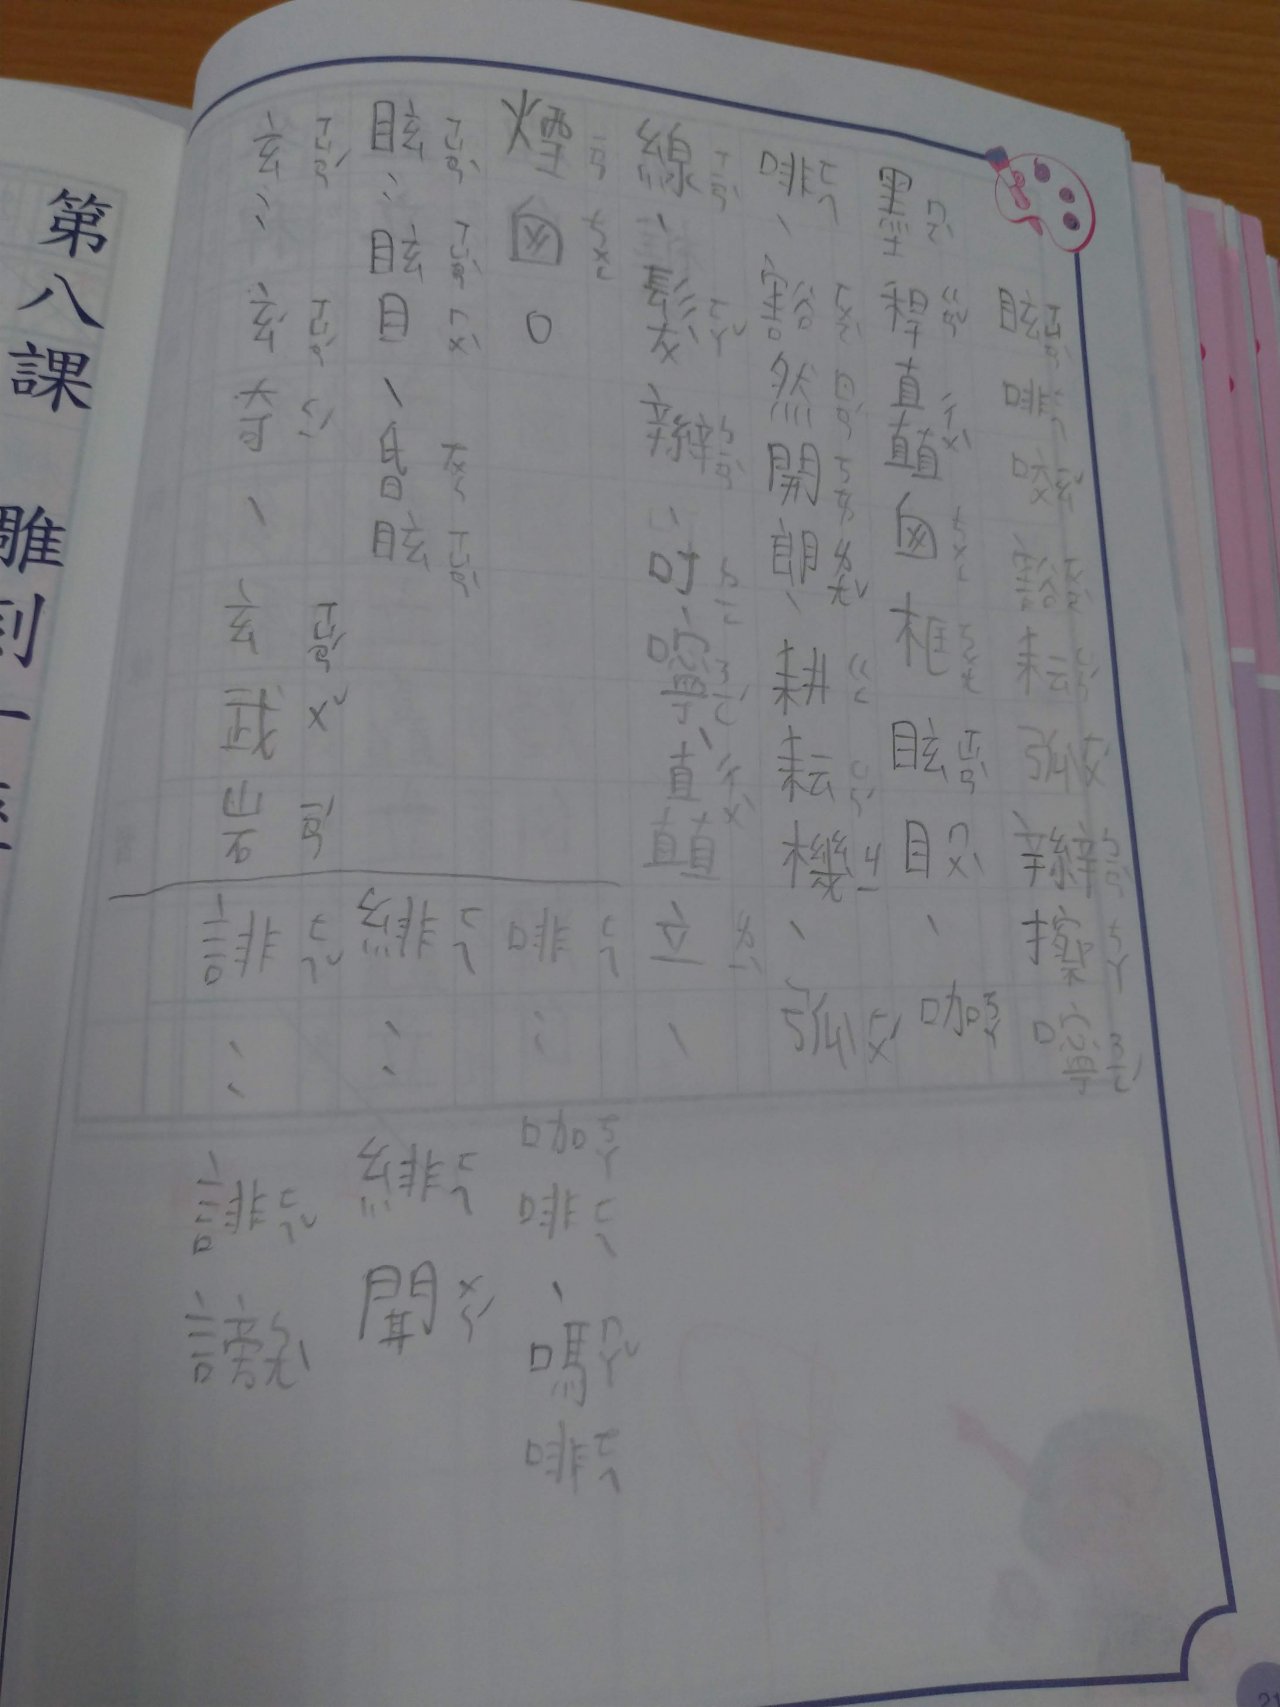 眩ㄒㄩㄢˋ啡ㄈㄟ唉ㄞ豁ㄏㄨㄛˋ耘ㄩㄣˊ弧ㄏㄨˊ辮ㄅㄧㄢˋ擦ㄘㄚ嚀ㄋㄧㄥˊ
墨ㄇㄛˋ稈ㄍㄢˇ直ㄔㄨˋ矗囪ㄘㄨㄥ框ㄎㄨㄤ眩ㄒㄩㄢˋ目ㄇㄨˋ、咖ㄎㄚ
啡ㄈㄟ、豁ㄏㄨㄛˋ然ㄖㄢˊ開ㄎㄞ朗ㄌㄤˇ、耕ㄍㄥ耘ㄩㄣˊ機ㄐㄧ、弧ㄏㄨˊ
線ㄒㄧㄢˋ、髮ㄈㄚˇ辮ㄅㄧㄢˋ、叮ㄉㄧㄥ嚀ㄋㄧㄥˊ、矗ㄔㄨˋ立ㄌㄧˋ、
煙ㄧㄢ囪ㄘㄨㄥ。
眩ㄒㄩㄢˋ：眩ㄒㄩㄢˋ目ㄇㄨˋ、昏ㄏㄨㄣ眩ㄒㄩㄢˋ
玄ㄒㄩㄢˊ：玄ㄒㄩㄢˊ奇ㄑㄧˊ、玄ㄒㄩㄢˊ武ㄨˇ岩ㄧㄢˊ
啡ㄈㄟ：咖ㄎㄚ啡ㄈㄟ、嗎ㄇㄚˇ啡ㄈㄟ
緋ㄈㄟ：緋ㄈㄟ聞ㄨㄣˊ
誹ㄈㄟˇ：誹ㄈㄟˇ謗ㄅㄤˋ
第八課
雕刻一